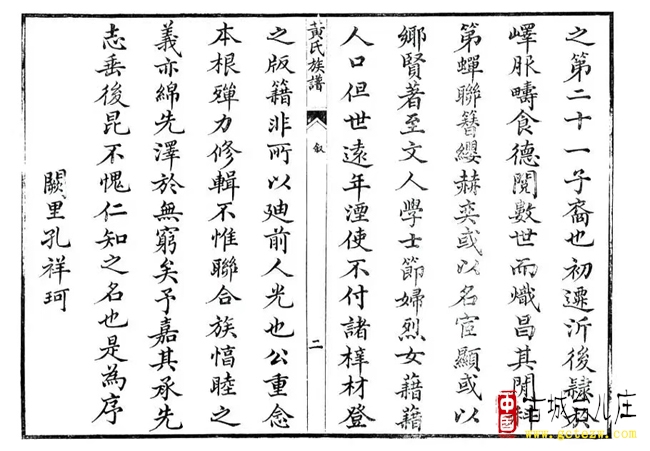 之第二十一子裔也初遷沂後隸
嶧服疇食德閱數世而熾昌其間科
第蟬聯簪纓赫奕或以名宦顯或以
鄉賢著至文人學士節婦烈女藉藉
人口但世遠年湮使不付諸梓材登
黃氏族譜
叙
二
之版籍非所以廸前人光也公重念
本根殫力修輯不惟聯合族愭睦之
義亦綿先澤於無窮矣予嘉其承先
志垂後昆不愧仁知之名也是為序
闕里孔祥珂
中國
古城台儿庄
www.gstezw.com